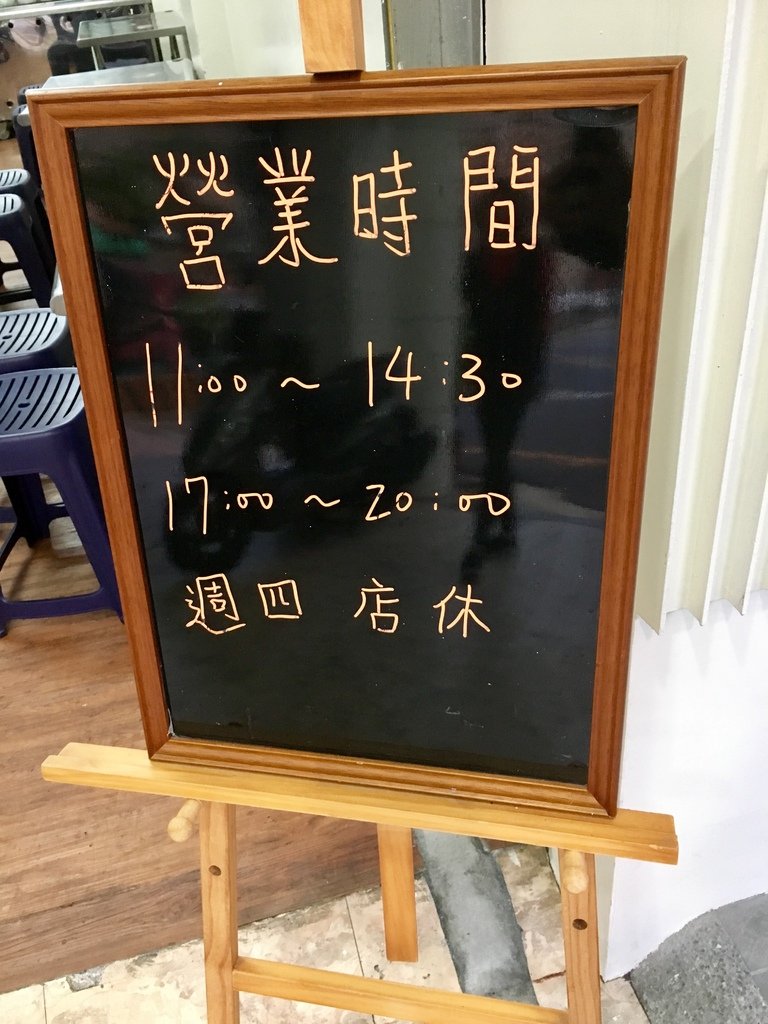 營業時間
11:00 ~ 14:30
17:00 ~ 20:00
週四 店休